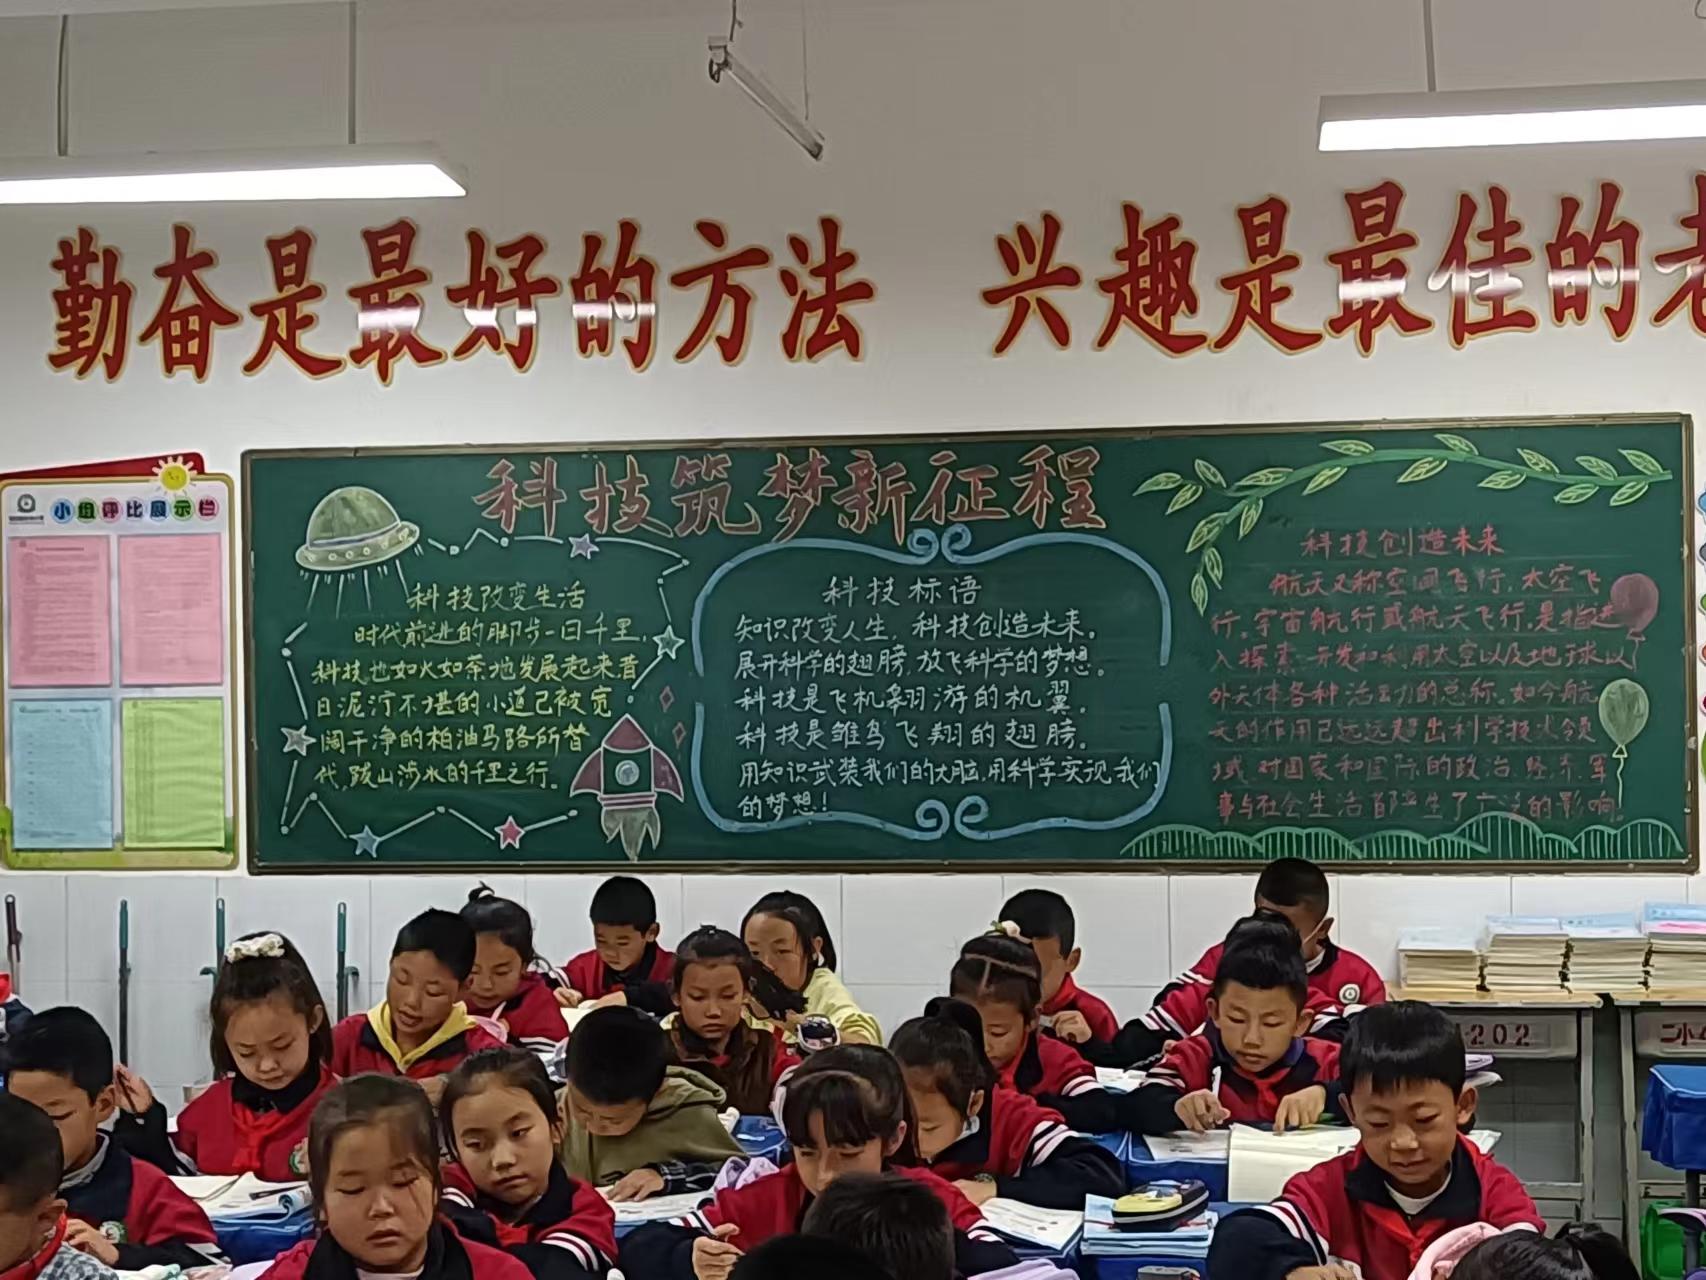 勤奋是最好的方法 兴趣是最佳的老
小组评比展示栏
科技筑梦新征程
科技改变生活
时代前进的脚步一日千里,
科技也如火如荼地发展起来昔
日泥泞不堪的小道已被宽
阔干净的柏油马路所替
代,跋山涉水的千里之行。
科技标语
知识改变人生,科技创造未来。
展开科学的翅膀,放飞科学的梦想。
科技是飞机翱游的机翼。
科技是雏鸟飞翔的翅膀。
用知识武装我们的大脑,用科学实现我们
的梦想!
科技创造未来
航天又称空间飞行,太空飞
行,宇宙航行或航天飞行,是指进
入探索、开发和利用太空以及地球以
外天体各种活动的总称。如今航
天的作用已远远超出科学技术领
域,对国家和国际的政治、经济、军
事与社会生活都产生了广泛的影响。
202
二小